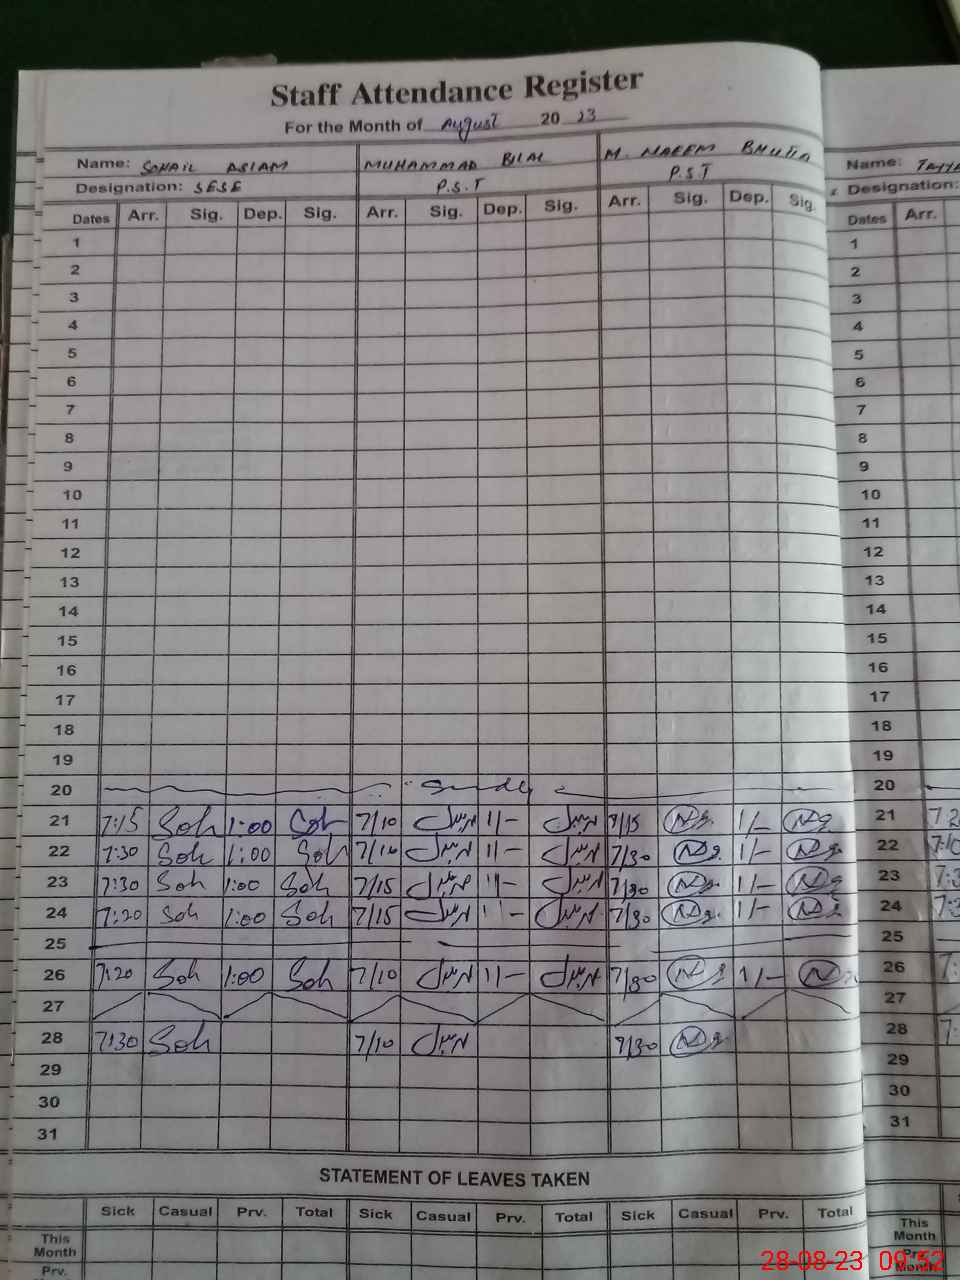 Staff Attendance Register
For the Month of August 20 23
Name: SOHAIL ASLAM MUHAMMAD BILAL M. NAEEM BHUTTA Name:
Designation: SESE P.S.T P.S.T Designation:
Dates Arr. Sig. Dep. Sig. Arr. Sig. Dep. Sig. Arr. Sig. Dep. Sig. Dates Arr.
1 1
2 2
3 3
4 4
5 5
6 6
7 7
8 8
9 9
10 10
11 11
12 12
13 13
14 14
15 15
16 16
17 17
18 18
19 19
20 Sunday 20
21 7:15 Soh 1:00 Soh 7/10 1/- 7/15 1/- 21
22 7:30 Soh 1:00 Soh 7/10 1/- 7/30 1/- 22
23 7:30 Soh 1:00 Soh 7/15 1/- 7/30 1/- 23
24 7:20 Soh 1:00 Soh 7/15 1/- 7/30 1/- 24
25 25
26 7:20 Soh 1:00 Soh 7/10 1/- 7/30 1/- 26
27 27
28 7:30 Soh 7/10 7/30 28
29 29
30 30
31 31
STATEMENT OF LEAVES TAKEN
Sick Casual Prv. Total Sick Casual Prv. Total Sick Casual Prv. Total
This Month This Month
Prv.
28-08-23 09:52